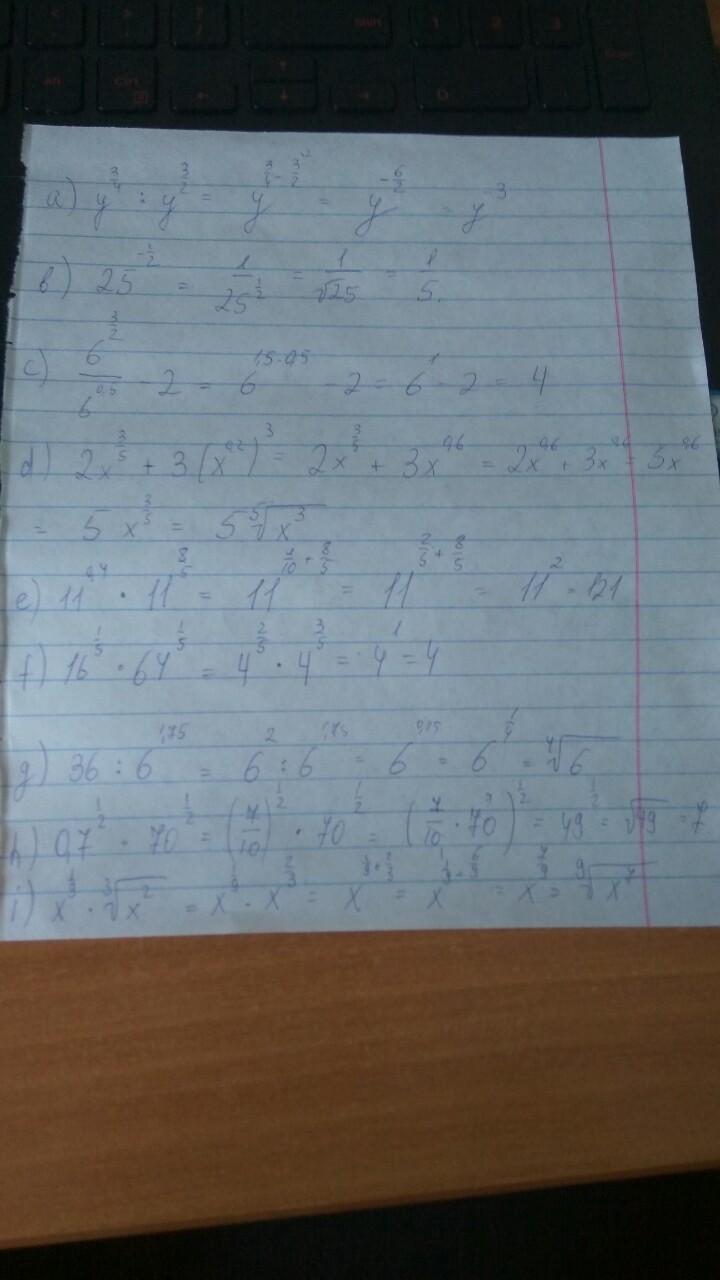 a) y^(3/4) : y^(3/2) = y^(3/4 - 3/2) = y^(-6/2) = y^(-3)
b) 25^(-1/2) = 1/25^(1/2) = 1/√25 = 1/5.
c) 6^(3/2)/6^(0,5) - 2 = 6^(1,5-0,5) - 2 = 6^1 - 2 = 4
d) 2x^(3/5) + 3(x^(0,2))^3 = 2x^(3/5) + 3x^(0,6) = 2x^(0,6) + 3x^(0,6) = 5x^(0,6)
= 5x^(3/5) = 5 ⁵√x³
e) 11^(0,4) · 11^(8/5) = 11^(4/10 + 8/5) = 11^(2/5 + 8/5) = 11^2 = 121
f) 16^(1/5) · 64^(1/5) = 4^(2/5) · 4^(3/5) = 4^1 = 4
g) 36 : 6^(1,75) = 6^2 : 6^(1,75) = 6^(0,25) = 6^(1/4) = ⁴√6
h) 0,7^(1/2) · 70^(1/2) = (7/10)^(1/2) · 70^(1/2) = (7/10 · 70)^(1/2) = 49^(1/2) = √49 = 7
i) x^(1/9) · ³√x² = x^(1/9) · x^(2/3) = x^(1/9 + 2/3) = x^(1/9 + 6/9) = x^(7/9) = ⁹√x⁷